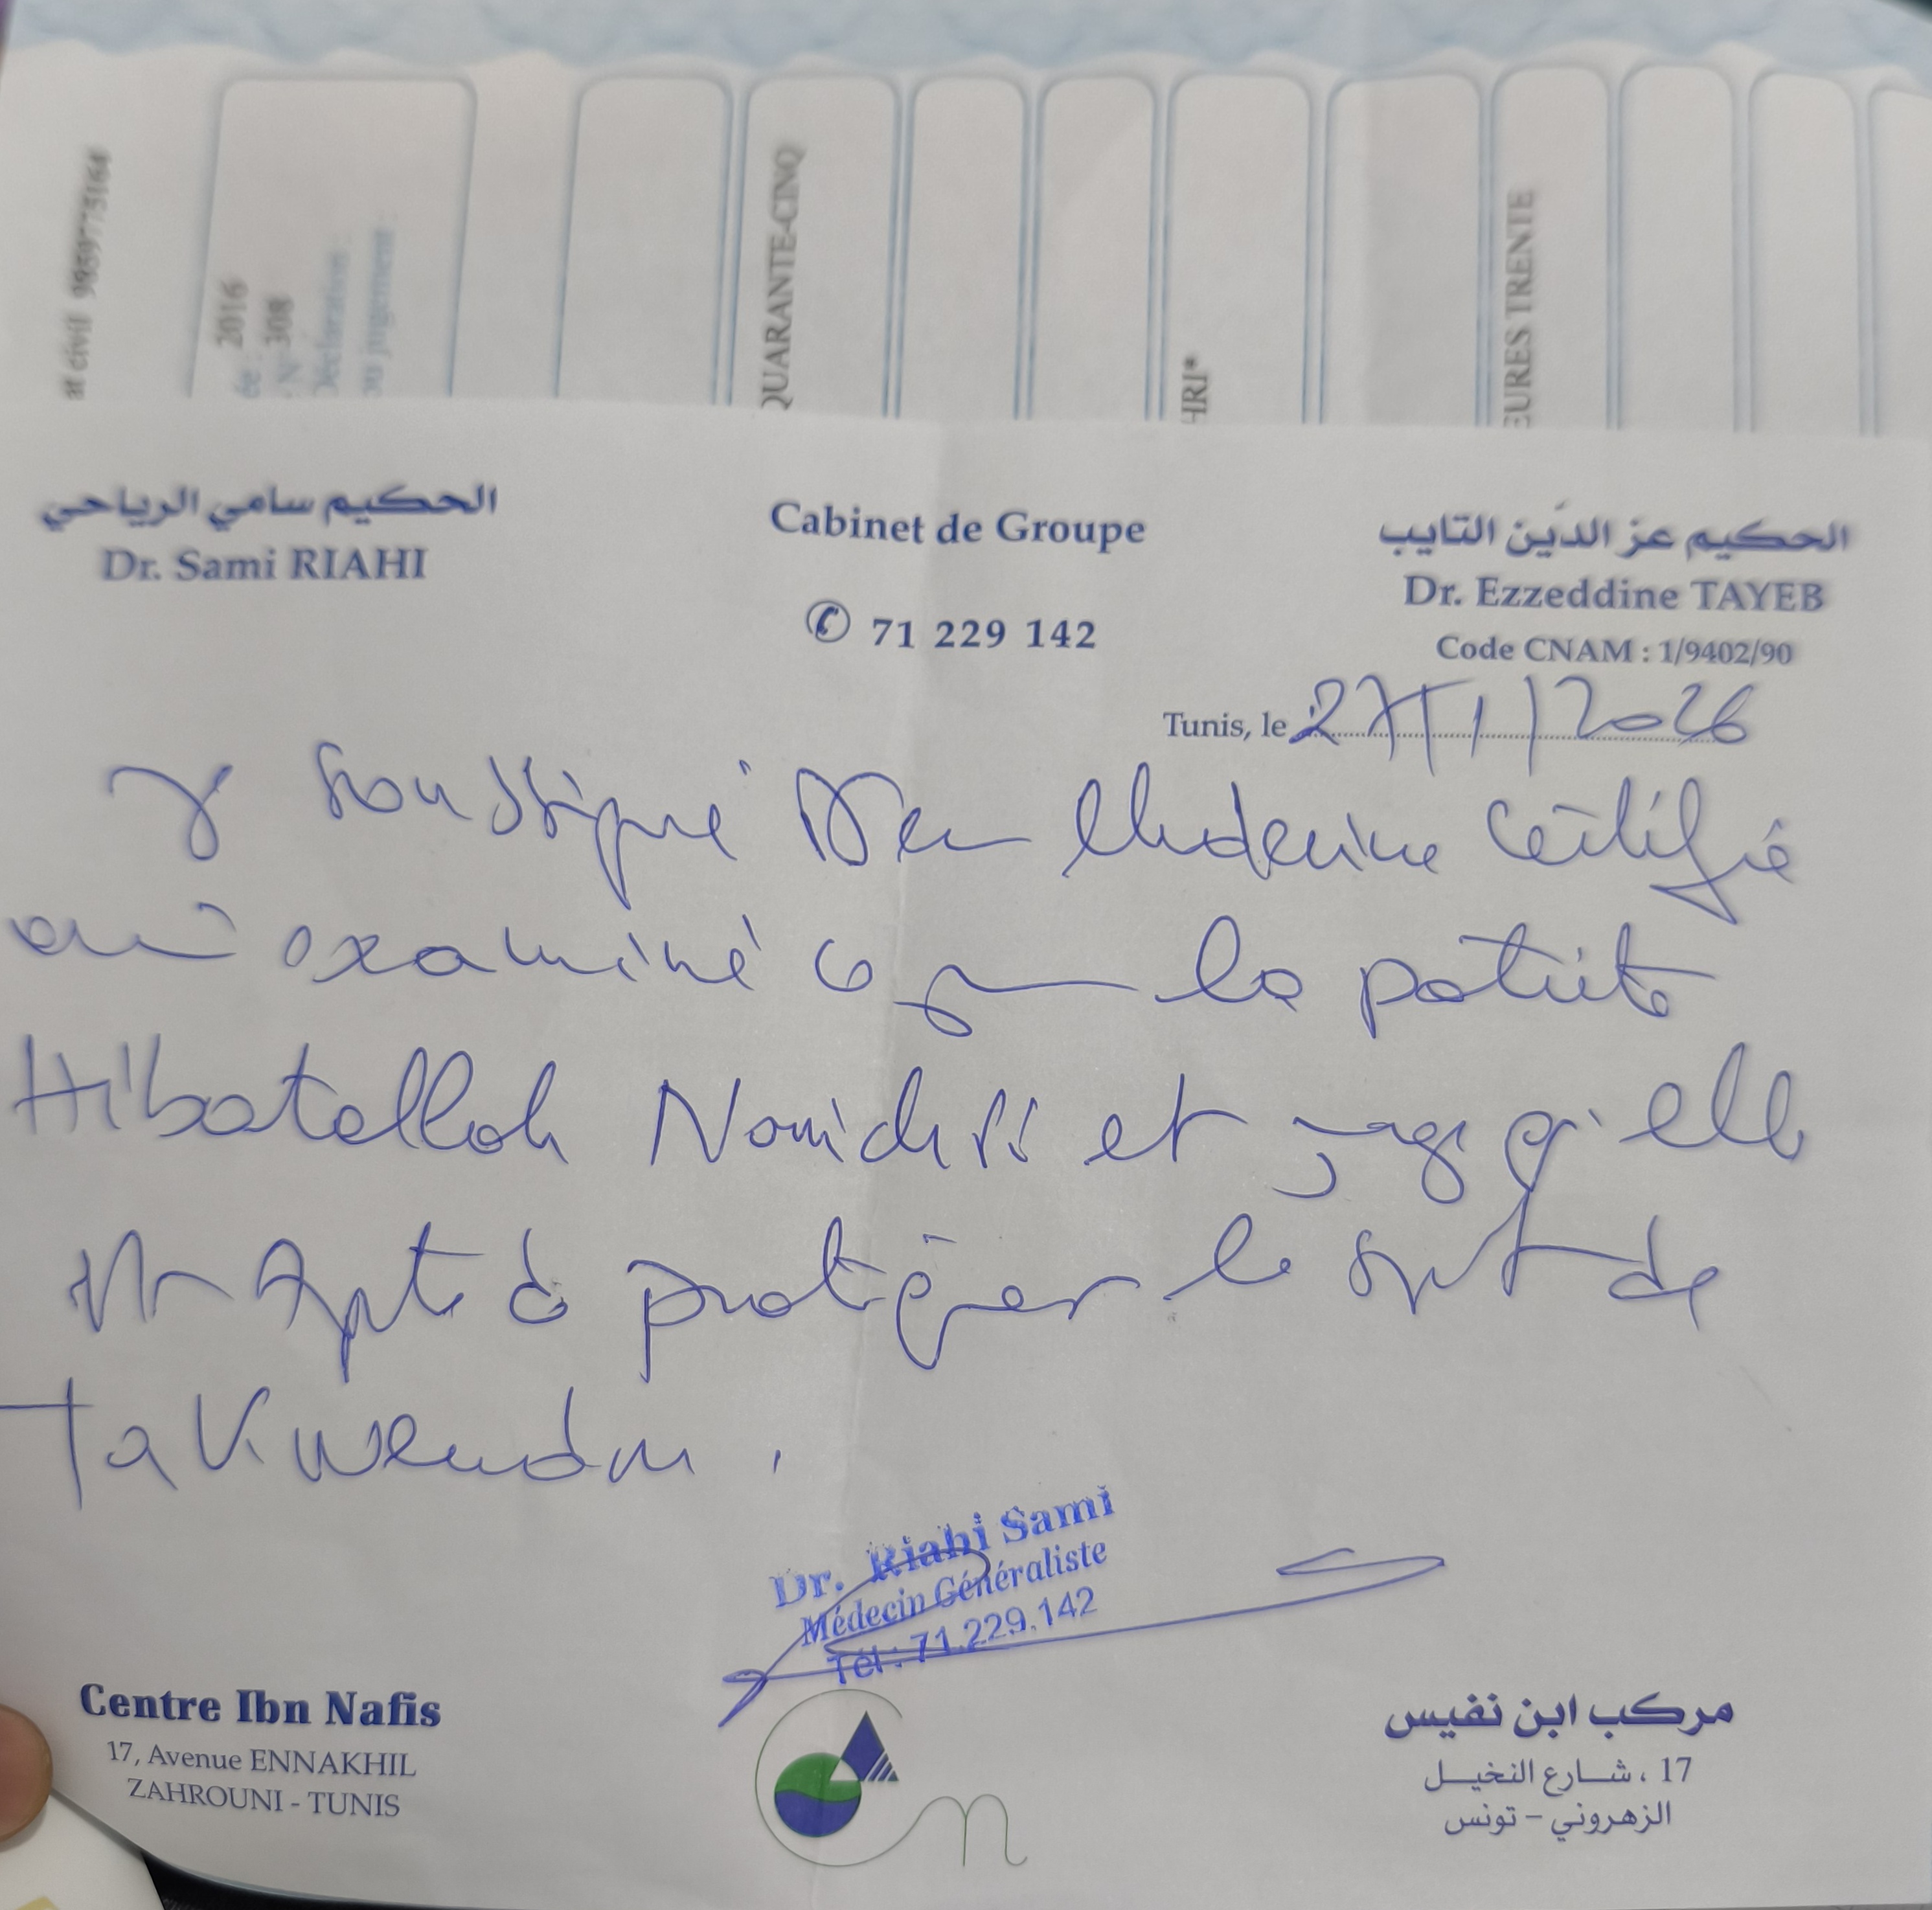 at civil 9959773164
2016
N° 308
Déclaration :
ou jugement :
QUARANTE-CINQ
HRI*
EURES TRENTE
الحكيم سامي الرياحي
Dr. Sami RIAHI
Cabinet de Groupe
71 229 142
الحكيم عز الدين التايب
Dr. Ezzeddine TAYEB
Code CNAM : 1/9402/90
Tunis, le 27/1/2026
Je soussigné Dr en Medecine certifie
avoir examiné ce jour la patiente
Hibatellah et juge qu'elle
est Apte à pratiquer le sport de
Takwendou.
Dr. Riahi Sami
Médecin Généraliste
Tél : 71.229.142
Centre Ibn Nafis
17, Avenue ENNAKHIL
ZAHROUNI - TUNIS
مركب ابن نفيس
17 ، شارع النخيل
الزهروني – تونس